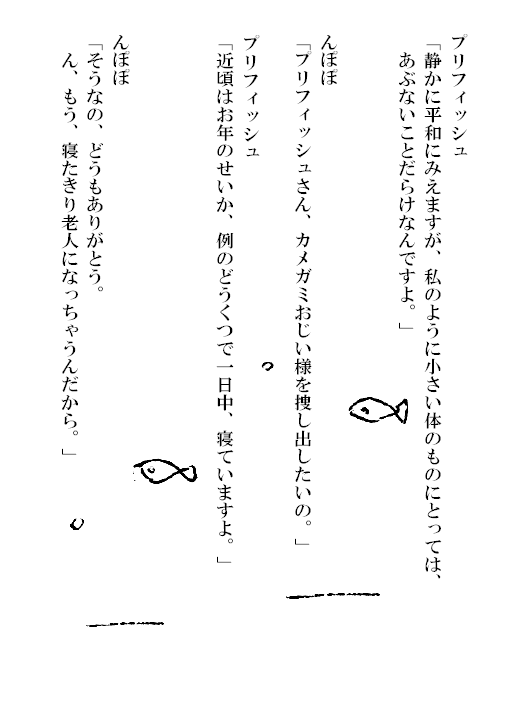 プリフィッシュ
「静かに平和にみえますが、私のように小さい体のものにとっては、
あぶないことだらけなんですよ。」
んぽぽ
「プリフィッシュさん、カメガミおじい様を捜し出したいの。」
プリフィッシュ
「近頃はお年のせいか、例のどうくつで一日中、寝ていますよ。」
んぽぽ
「そうなの、どうもありがとう。
ん、もう、寝たきり老人になっちゃうんだから。」